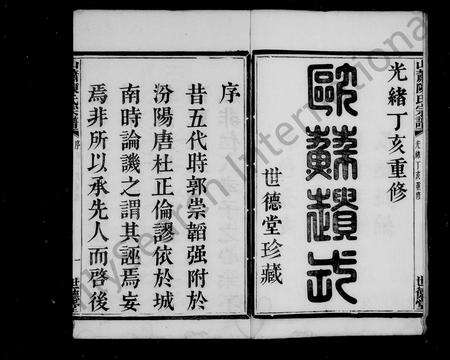 光緒丁亥重修
歐蘇遺式
世德堂珍藏
序
昔五代時郭崇韜强附於
汾陽唐杜正倫謬依於城
南時論譏之謂其誣焉妄
焉非所以承先人而啓後
光緒丁亥重修
序
一